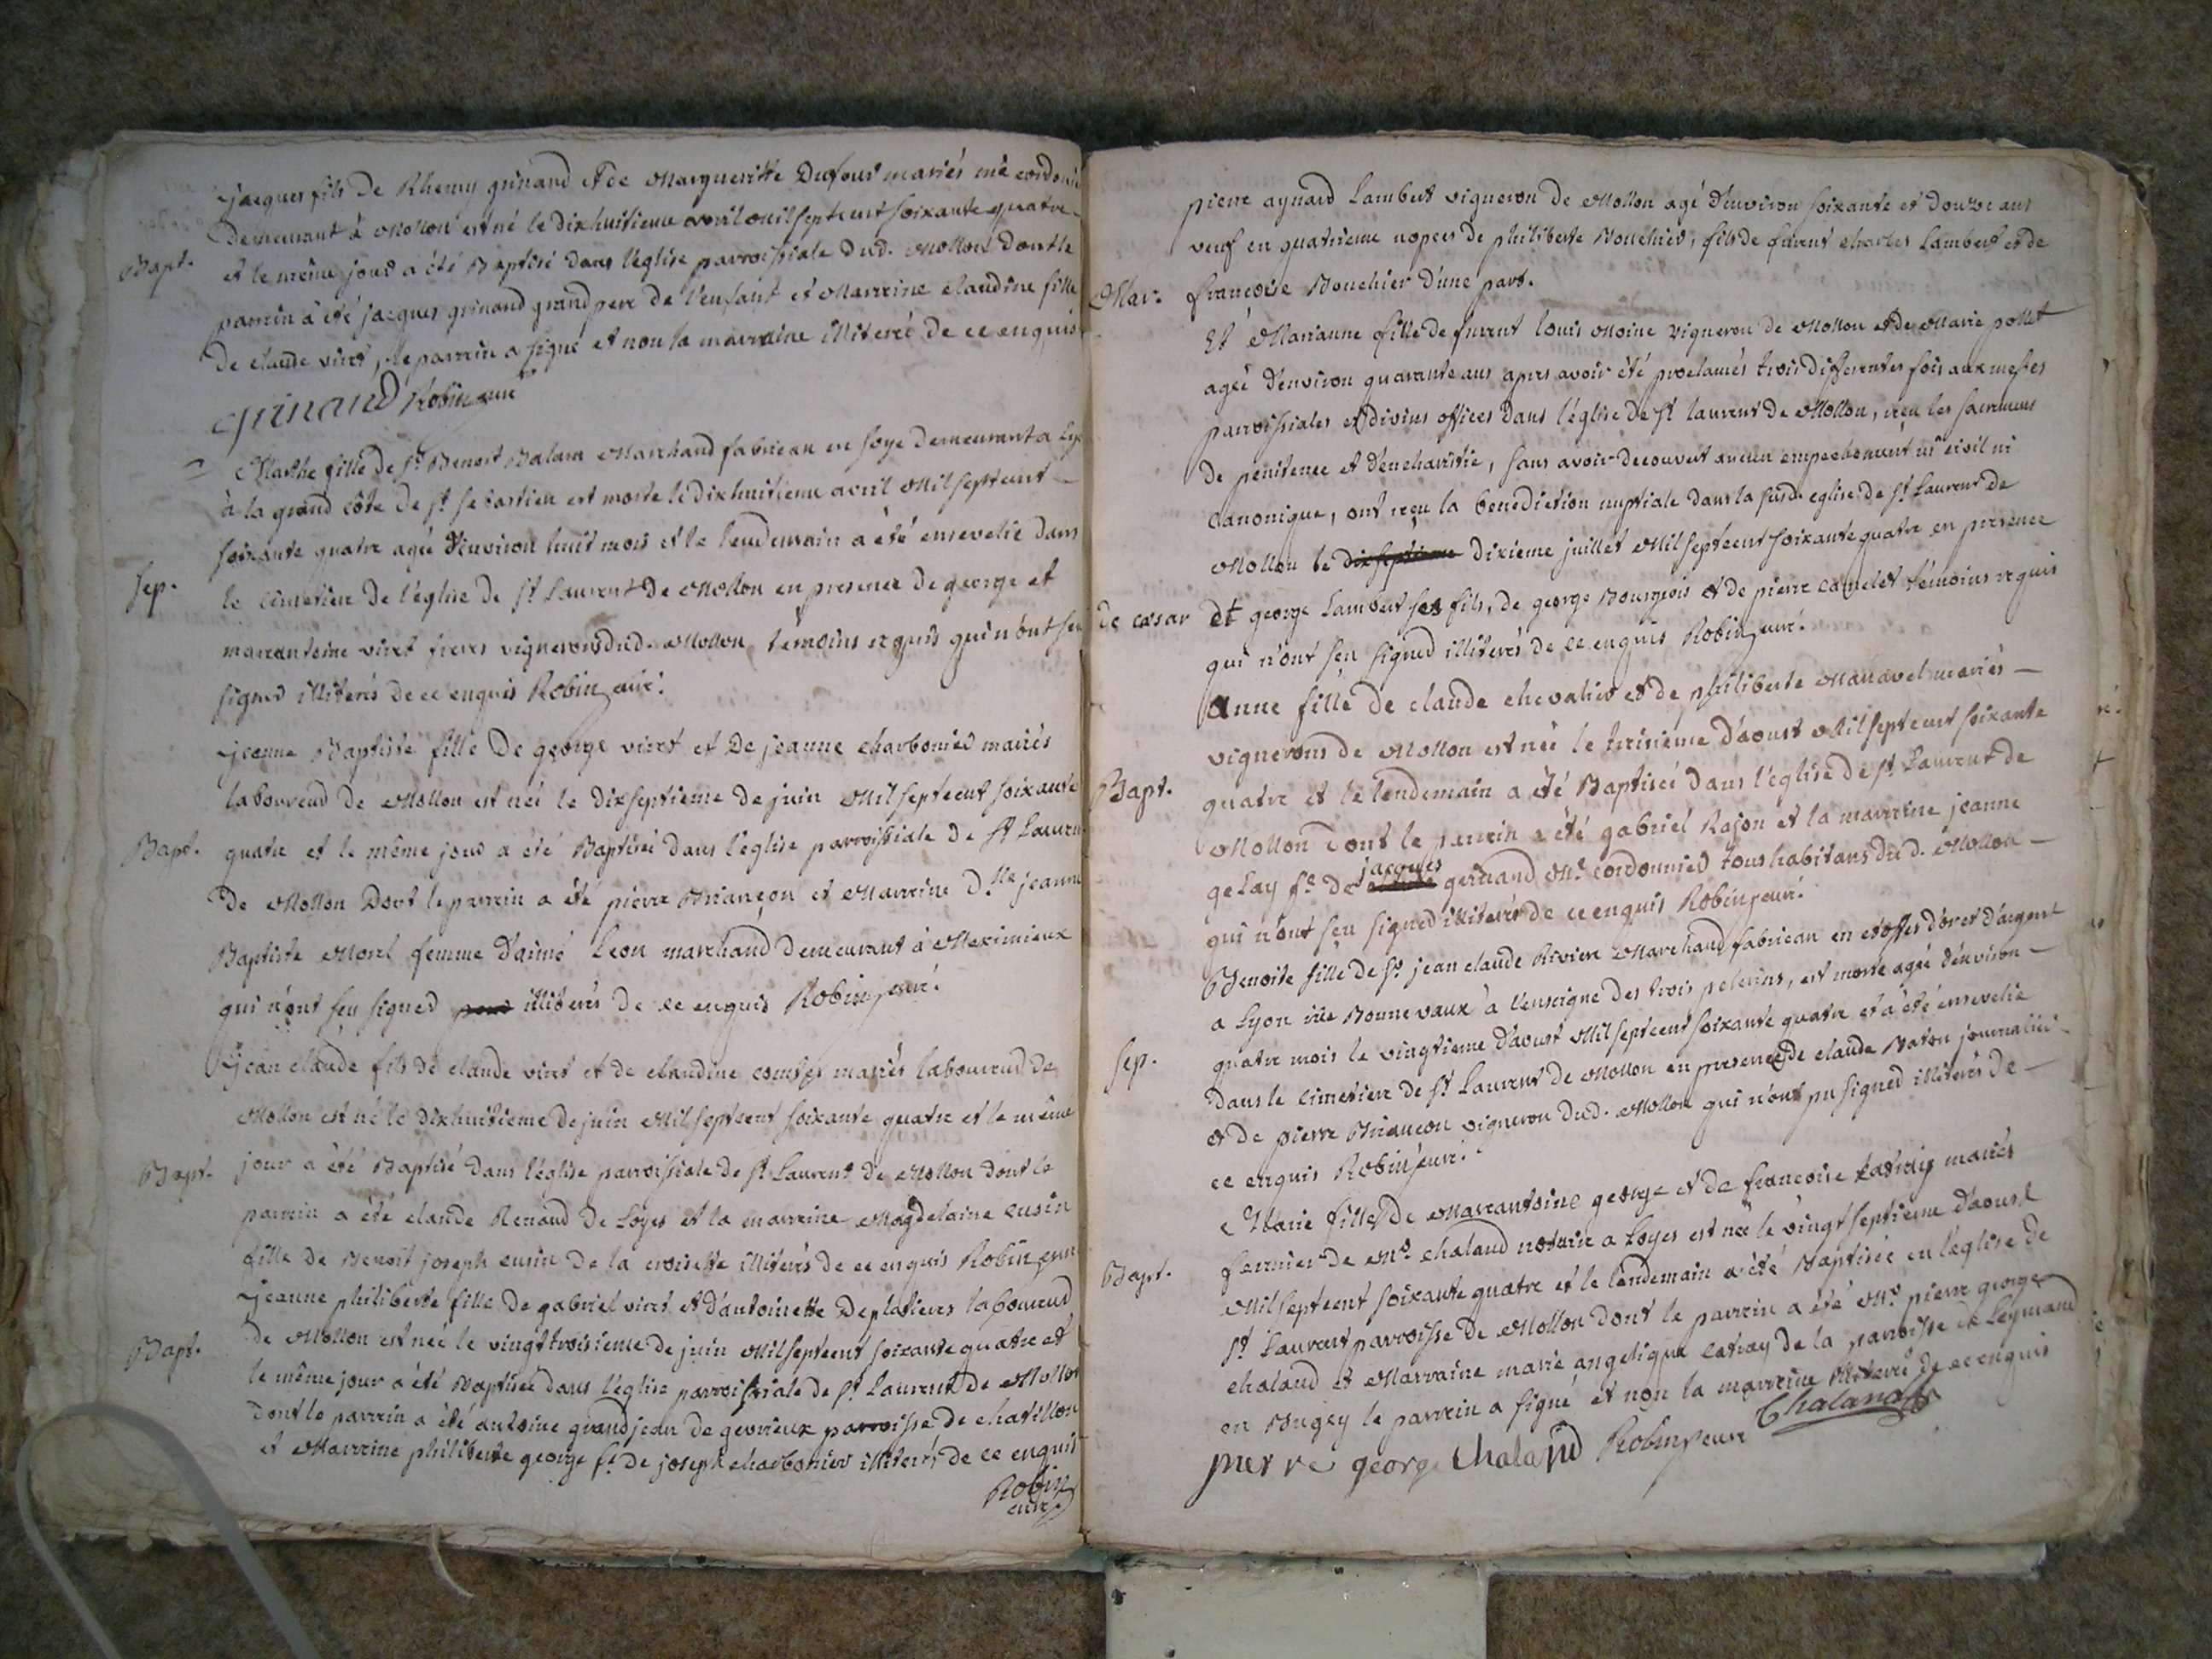 jacques fils de Rhemy grinand et de Margueritte Dufour mariés mè cordonier
demeurant à Mollon est né le dixhuitieme avril mil septcent soixante quatre
Bapt. et le même jour a été Baptisé dans l'église parroissiale dud. Mollon dont le
parrin a été jacques grinand grand pere de l'enfant et Marrine claudine fille
de claude viret, le parrin a signé et non la marraine illiterée de ce enquis
grinand Robin curé
Marthe fille de sr. Benoit Balam Marchand fabrican en soye demeurant a Lyon
à la grand côte de st sebastien est morte le dixhuitieme avril Mil septcent
soixante quatre agée d'environ huit mois et le lendemain a été ensevelie dans
Sep. le cimetiere de l'église de st Laurent de Mollon en presence de george et
marcantoine viret freres vignerons dud. Mollon, témoins requis qui n'ont seu
signer illiterés de ce enquis Robin curé.
jeanne Baptiste fille De george viret et De jeanne charbonier mariés
laboureur de Mollon est née le dixseptieme de juin Mil septcent soixante
Bapt. quatre et le même jour a été Baptisée dans l'église parroissiale de st Laurent
de Mollon Dont le parrin a été pierre Briançon et Marrine D.lle jeanne
Baptiste Morel femme d'aimé Leon marchand demeurant à Meximieux
qui n'ont seu signer illiterés de ce enquis Robin curé.
jean claude fils de claude viret et de claudine mariés laboureur de
Mollon est né le dixhuitieme de juin Mil septcent soixante quatre et le même
Bapt. jour a été Baptisé dans l'église parroissiale de st Laurent de Mollon dont le
parrin a été claude Renaud de Loyes et la marrine Magdelaine cusin
fille de Benoit joseph cusin de la croisette illiterés de ce enquis Robin curé
jeanne philiberte fille de gabriel viret et d'antoinette Deplatieres laboureur
Bapt. de Mollon est née le vingt troisieme de juin Mil septcent soixante quatre et
le même jour a été Baptisée dans l'église parroissiale de st Laurent de Mollon
dont le parrin a été antoine grandjean de gevrieux parroisse de chatillon
et Marrine philiberte george f.e de joseph charbonier illiterés de ce enquis
Robin
curé
pierre aynard Lambert vigneron de Mollon agé d'environ soixante et douze ans
veuf en quatrieme nopces de philiberte Bouchier, fils de furent charles Lambert et de
Mar. francoise Bouchier d'une part.
Et Marianne fille de furent louis Moine vigneron de Mollon et de Marie pollet
agée d'environ quarante ans apres avoir été proclamés trois differentes fois aux messes
parroissiales et divins offices dans l'église de st laurent de Mollon, reçu les sacremens
de penitence et d'eucharistie, sans avoir decouvert aucun empechement ni civil ni
canonique, ont reçu la benediction nuptiale dans la susd. eglise de st Laurent de
Mollon le dixseptieme dixieme juillet Mil septcent soixante quatre en presence
de cæsar et george Lambert ses fils, de george Bourgeois et de pierre camelet témoins requis
qui n'ont seu signer illiterés de ce enquis Robin curé.
Anne fille de claude chevalier et de philiberte Manavel mariés
vignerons de Mollon est née le treisiéme d'aoust Mil septcent soixante
Bapt. quatre et le lendemain a été Baptisée dans l'église de st Laurent de
Mollon dont le parrin a été gabriel Rajon et la marrine jeanne
jacques
gelay f.e de grinand M.e cordonnier tous habitans dud. Mollon
qui n'ont seu signer illiterés de ce enquis Robin curé.
Benoite fille de sr. jean claude Riviere Marchand fabrican en étoffes d'or et d'argent
a Lyon rüe Bonnevaux à l'enseigne des trois pelerins, est morte agée d'environ
Sep. quatre mois le vingtieme d'aoust Mil septcent soixante quatre et a été ensevelie
dans le cimetiere de st Laurent de Mollon en presence de claude Baton journalier
et de pierre Briançon vigneron dud. Mollon qui n'ont pu signer illiterés de
ce enquis Robin curé.
Marie fille de Marcantoine george et de francoise mariés
fermier de M.e chaland notaire a Loyes est née le vingt septieme d'aoust
Bapt. Mil septcent soixante quatre et le lendemain a été Baptisée en l'église de
st Laurent parroisse de Mollon dont le parrin a été M.e pierre george
chaland et Marraine marie angelique catray de la parroisse de Leymand
en Bugey le parrin a signé et non la marrine illiterée de ce enquis
pierre george Chaland Robin curé Chaland